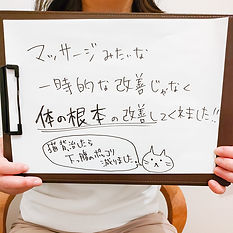 マッサージみたいな
一時的な改善じゃなく
体の根本の改善してくれました!!
猫背治したら
下っ腹のポッコリ
減りました。